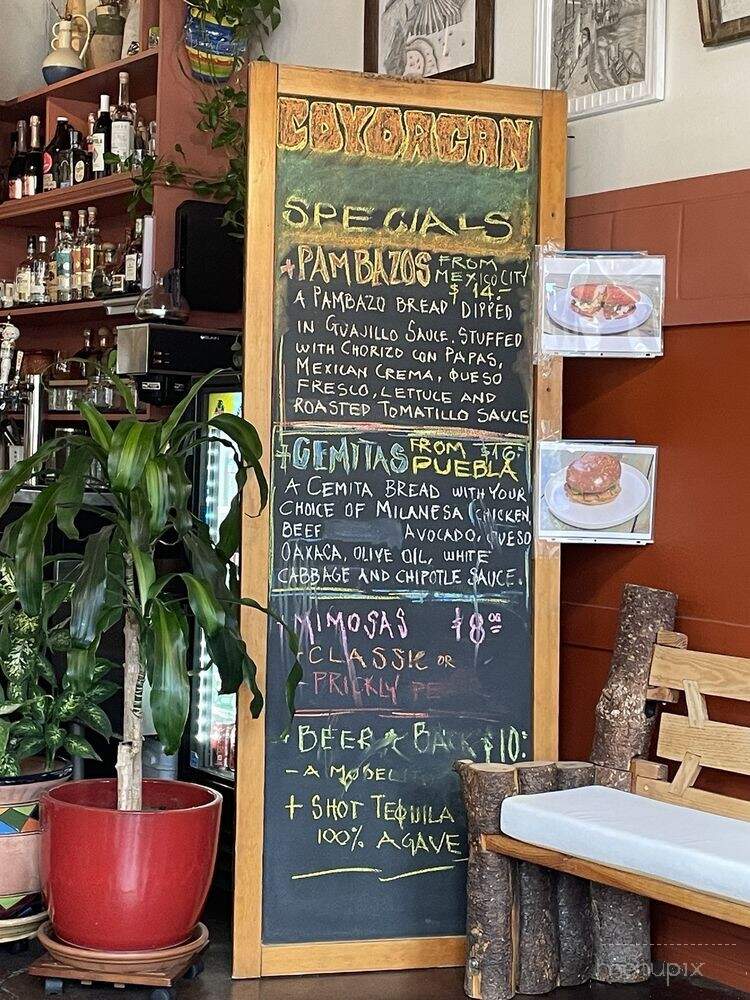 COYOACAN
SPECIALS
+PAMBAZOS FROM
MEXICO CITY
$14.-
A PAMBAZO BREAD DIPPED
IN GUAJILLO SAUCE. STUFFED
WITH CHORIZO CON PAPAS,
MEXICAN CREMA, QUESO
FRESCO, LETTUCE AND
ROASTED TOMATILLO SAUCE
+CEMITAS FROM $16.-
PUEBLA
A CEMITA BREAD WITH YOUR
CHOICE OF MILANESA (CHICKEN,
BEEF AVOCADO, QUESO
OAXACA, OLIVE OIL, WHITE
CABBAGE AND CHIPOTLE SAUCE.
MIMOSAS $8.00
- CLASSIC OR
- PRICKLY
+ BEER & BACK $10.-
- A MODELO
+ SHOT TEQUILA
100% AGAVE
menupix